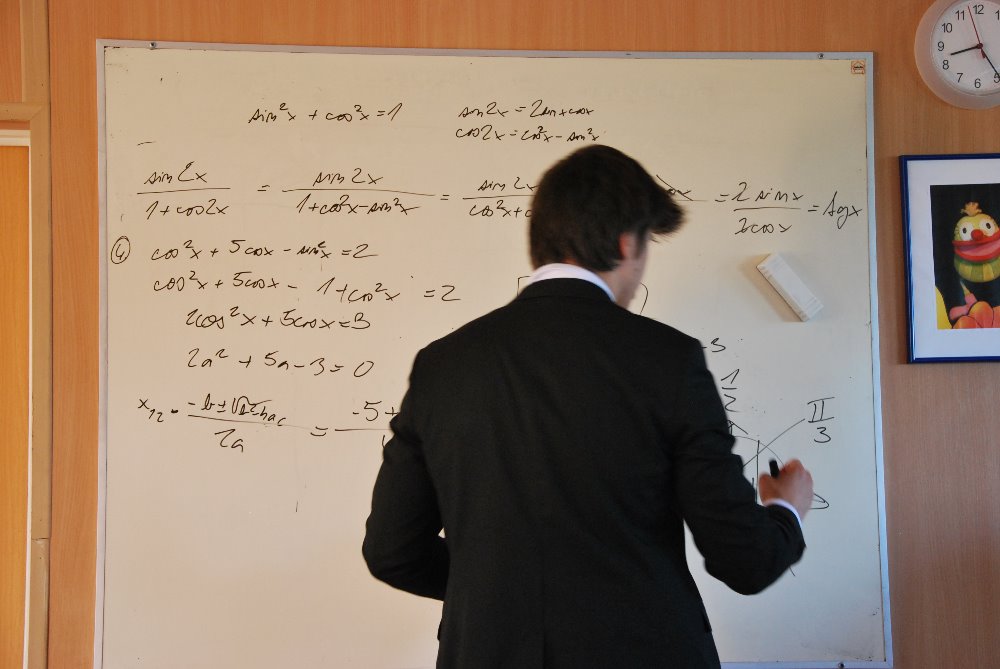 sin²x + cos²x = 1
sin2x = 2sinxcosx
cos2x = cos²x - sin²x
sin2x / 1+cos2x = sin2x / 1+cos²x-sin²x = sin2x / cos²x+c = 2sinx / 2cosx = tgx
4 cos²x + 5cosx - sin²x = 2
cos²x + 5cosx - 1+cos²x = 2
2cos²x + 5cosx = 3
2a² + 5a - 3 = 0
-3
1/2
x₁₂ = -b±√b²-4ac / 2a = -5+
π/3
11 12 1
10
9
8
7 6 5